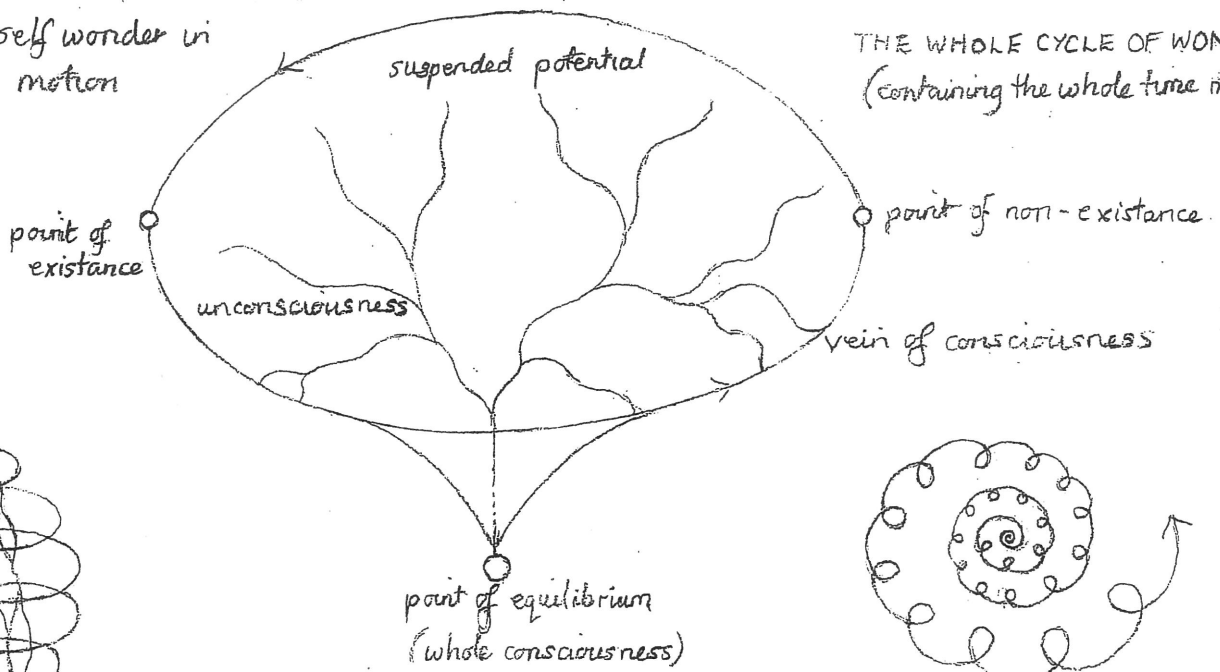 self wonder in
motion
suspended potential
THE WHOLE CYCLE OF
(containing the whole time
point of
existance
point of non-existance.
unconsciousness
vein of consciousness
point of equilibrium
(whole consciousness)